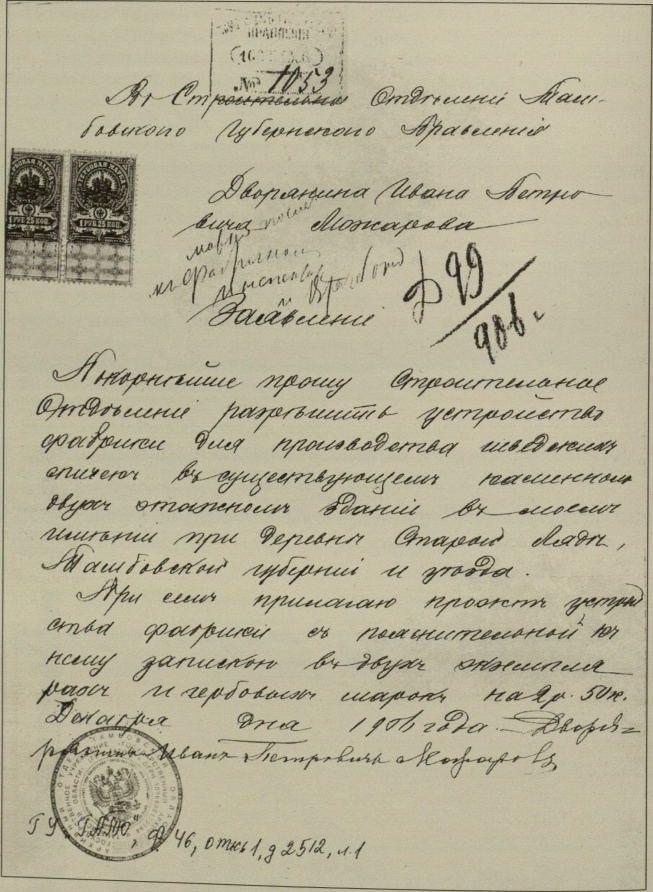 ПРАВЛЕНІЯ
№ 1053
Въ Строительное Отдѣленіе Там-
бовскаго Губернскаго Правленія
1 РУБ 25 КОП. 1 РУБ 25 КОП.
Дворянина Ивана Петро
вича Можарова
Д 99
906 г.
Заявленіе
Покорнѣйше прошу Строительное
Отдѣленіе разрѣшить устройство
фабрики для производства шведскихъ
спичекъ въ существующемъ каменномъ
двухъ этажномъ зданіи въ моемъ
имѣніи при деревнѣ Старой Лядѣ,
Тамбовской губерніи и уѣзда.
При семъ прилагаю проэктъ устрой
ства фабрики съ пояснительной къ
нему запискою въ двухъ экземпля
рахъ и гербовыхъ марокъ на 2 р. 50 к.
Декабря дня 1906 года. Дворя=
нинъ Иванъ Петровичъ Можаровъ
ГУ ГАТО, ф. 46, опись 1, д 2512, л. 1